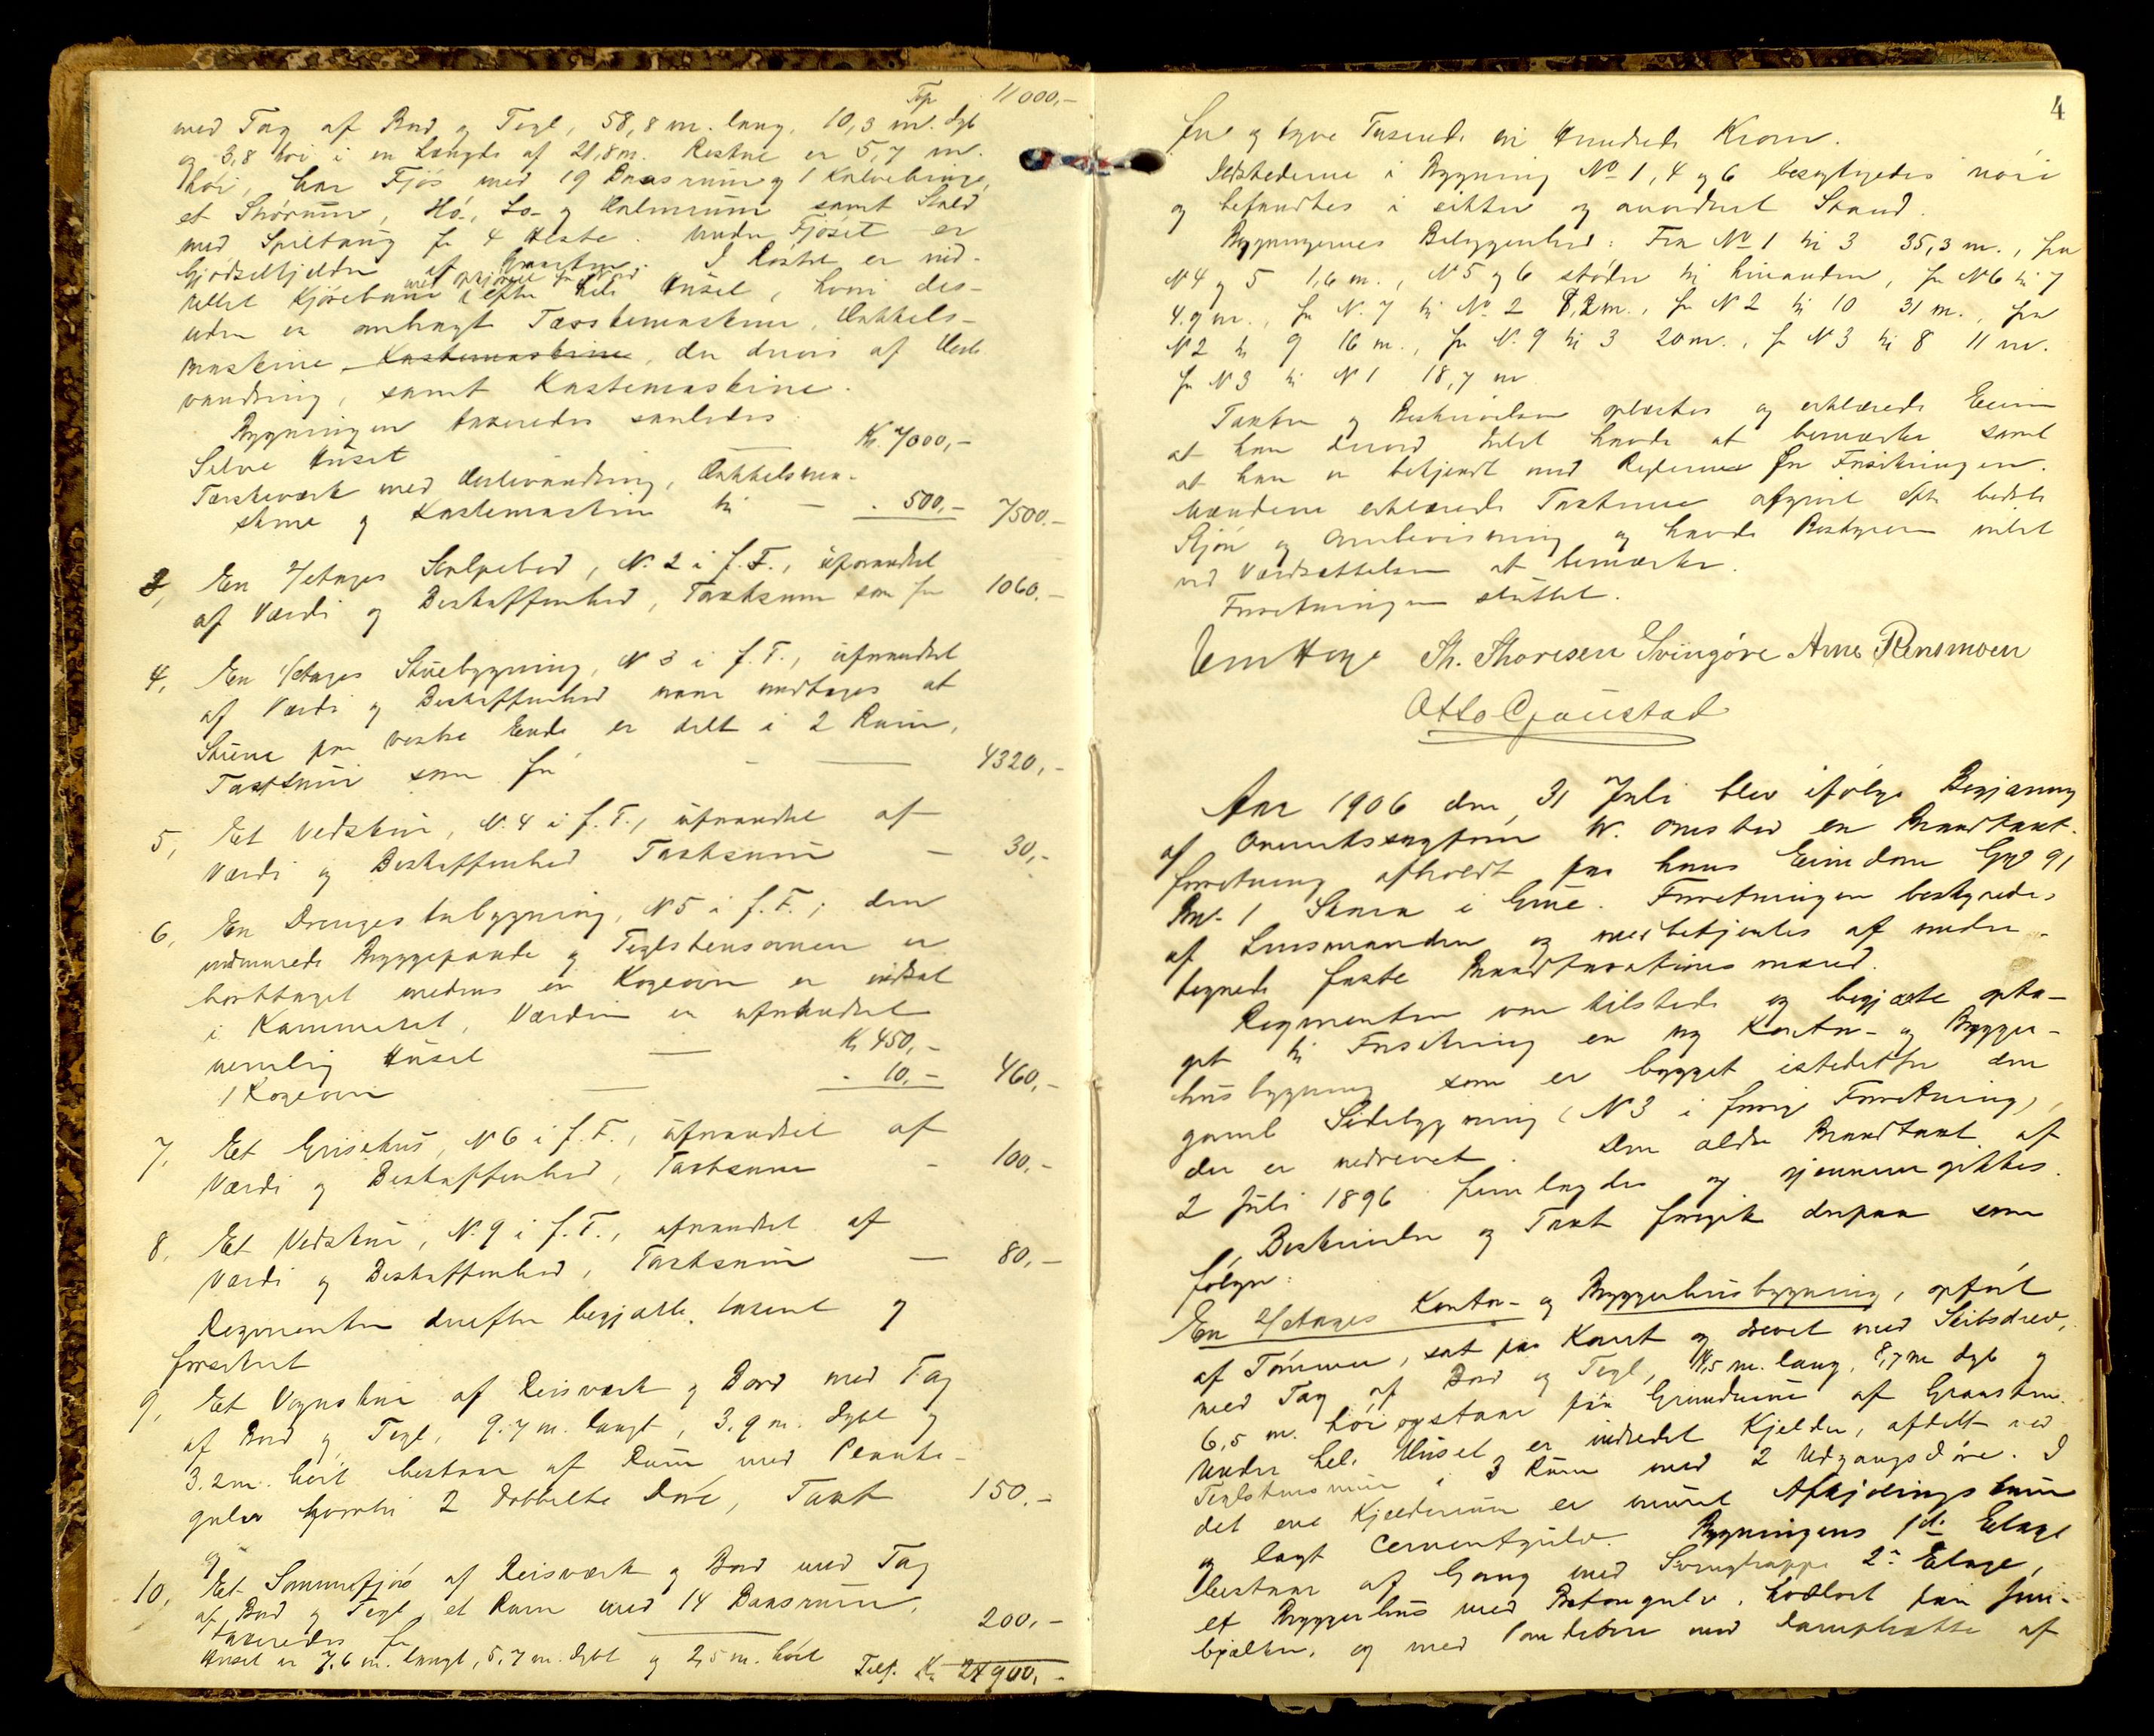 Trp 11000,-
med Tag af Bord og Tegl, 58,8 m. lang, 10,3 m. dyb
og 3,8 høi i en Længde af 21,8 m. Resten er 5,7 m.
høi, har Fjøs med 19 Baasrum og 1 Kalvebinge,
et Skørum, Hø-, Lo- og Halmrum samt Stald
med Spiltaug for 4 Heste. Under Fjøset er
Gjødselkjelder af Graasten. I Røstet er ind-
med opkjørsel fra Nord
rettet Kjørebane efter hele Huset, hvori des-
uden er anbragt Tærskemaskine, Hakkels-
maskine, Kastemaskine, der drives af Heste
vandring, samt Kastemaskine.
Bygningen taxeredes saaledes
Selve Huset — Kr. 7000,-
Tærskeværk med Hestevandring, Hakkelsma-
skine og Kastemaskine til — . 500,- 7500.-
3, En 2/etages Stolpebod, N. 2 i f. F., uforandret
af Værdi og Beskaffenhed, Taxtsum som før 1060.-
4, En 1/etages Stuebygning, N 3 i f. F., uforandret
af Værdi og Beskaffenhed naar undtages at
Stuen paa vestre Ende er delt i 2 Rum,
Taxtsum som før — 4320,-
5, Et Vedskur, N. 4 i f. F., uforandret af
Værdi og Beskaffenhed Taxtsum — 30,-
6, En Drengestubygning, N 5 i f. F.; den
indmurede Bryggepande og Teglstensovnen er
borttaget medens en Kogeovn er indsat
i Kammeret, Værdien er uforandret
nemlig Huset — Kr 450,-
1 Kogeovn — . 10,- 460,-
7, Et Grisehus, N 6 i f. F., uforandret af
Værdi og Beskaffenhed, Taxtsum - 100,-
8, Et Vedskur, N. 9 i f. F., uforandret af
Værdi og Beskaffenhed, Taxtsum — 80,-
Rekvirenten derefter begjærte taxeret og
forsikret
9, Et Vognskur af Reisværk og Bord med Tag
af Bord og Tegl, 9.7 m. langt, 3.9 m. dybt og
3.2 m. høit bestaar af Rum med Planke-
gulv hvortil 2 dobbelte Døre, Taxt 150.-
10, Et Sommerfjøs af Reisværk og Bord med Tag
af Bord og Tegl, et Rum med 14 Baasrum,
taxeredes for — 200,-
Huset er 7,6 m. langt, 5,7 m. dybt og 2,5 m. høit Tils. Kr. 24900,-
4
fire og tyve Tusende ni Hundrede Kroner.
Ildstederne i Bygning No 1, 4 og 6 besigtigedes nøie
og befandtes i sikker og anordnet Stand.
Bygningernes Beliggenhed: Fra No 1 til 3 35,3 m., fra
N 4 og 5 1,6 m., N 5 og 6 støder til hinanden, fra N 6 til 7
4.9 m., fra N. 7 til No 2 8,2 m., fra N 2 til 10 31 m., fra
N 2 til 9 16 m., fra N. 9 til 3 20 m., fra N 3 til 8 11 m.
fra N 3 til N 1 18,7 m
Taxten og Beskrivelsen oplæstes og erklærede Eieren
at han derved intet havde at bemærke samt
at han er bekjendt med Reglerne for Forsikringen.
Mændene erklærede Taxterne afgivet efter bedste
Skjøn og Overbevisning og havde Bestyreren intet
ved Værdsættelsen at bemærke.
Forretningen sluttet.
Th. Thoresen Svingøre Arne Rensmoen
Otto Gjøustad
Aar 1906 den 31 Juli blev ifølge Begjæring
af Overretssagfører W. Omsted en Brandtaxt-
forretning afholdt paa hans Eiendom Gno 91
Bno. 1 Skara i Grue. Forretningen bestyredes
af Lensmanden og medbetjentes af under-
tegnede faste Brandtaxationsmænd.
Rekvirenten var tilstede og begjærte opta-
get til Forsikring en ny Kontor- og Brygger-
husbygning som er bygget istedetfor den
gamle Sidebygning (N 3 i forrige Forretning),
der er nedrevet. Den ældre Brandtaxt af
2 Juli 1896 fremlagdes og gjennemgikkes.
Beskrivelse og Taxt foregik derpaa som
følger:
En 2/etages Kontor- og Bryggerhusbygning, opført
af Tømmer, sat paa Kant og drevet med Skibsdrev,
med Tag af Bord og Tegl, 11,5 m. lang, 8,7 m dyb og
6,5 m. høi opstaar paa Grundmur af Graasten.
Under hele Huset er indredet Kjelder, afdelt ved
Teglstensmur i 3 Rum med 2 Udgangsdøre. I
det ene Kjælderrum er muret Afkjølingskum
og lagt Cementgulv. Bygningens 1ste Etage
bestaar af Gang med Svingtrappe 2. Etage,
et Bryggerhus med Betongulv, hvælvet paa Jern-
bjælker, og med Pandeovn med Damphætte af